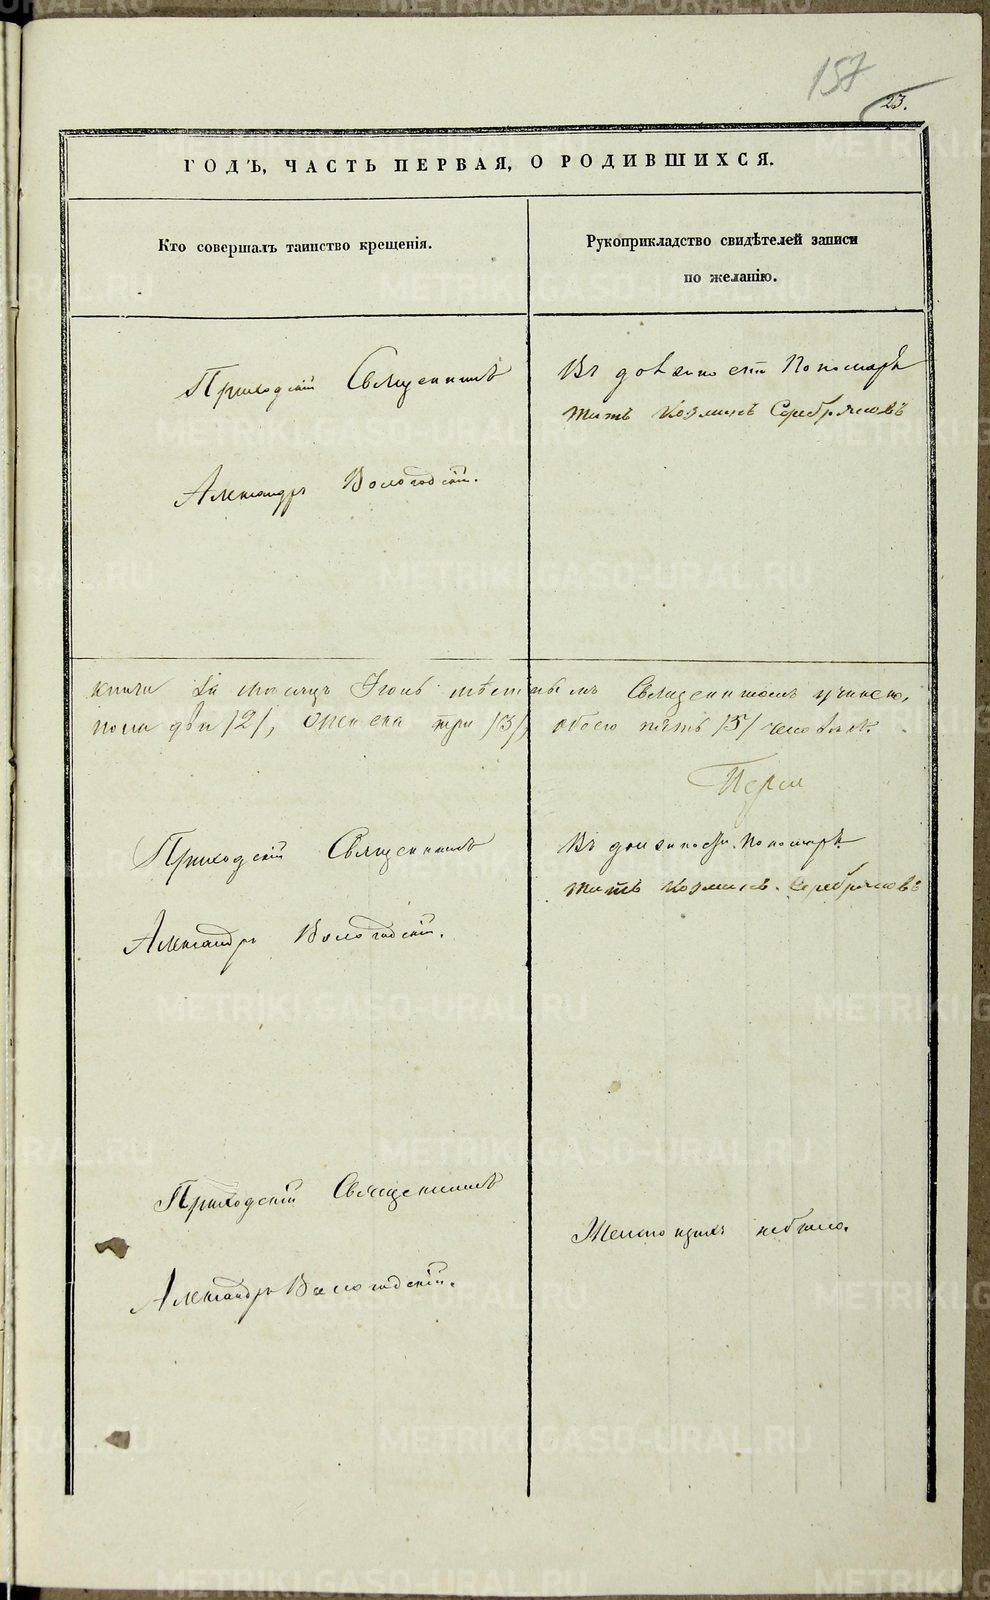 157
23.
ГОДЪ, ЧАСТЬ ПЕРВАЯ, О РОДИВШИХСЯ.
Кто совершалъ таинство крещенія.
Рукоприкладство свидѣтелей записи
по желанію.
Приходскій Священникъ
Александръ Вологодскій.
Въ должности Пономаря
Титъ Козминъ Серебряковъ
книги за мѣсяцъ Іюнь мѣстнымъ Священникомъ учинено,
пола два /2/, женска три /3/, обоего пять /5/ человѣкъ.
Приходскій Священникъ
Александръ Вологодскій.
Въ должности Пономаря
Титъ Козминъ Серебряковъ
Приходскій Священникъ
Александръ Вологодскій.
Желающихъ небыло.
METRIKI.GASO-URAL.RU